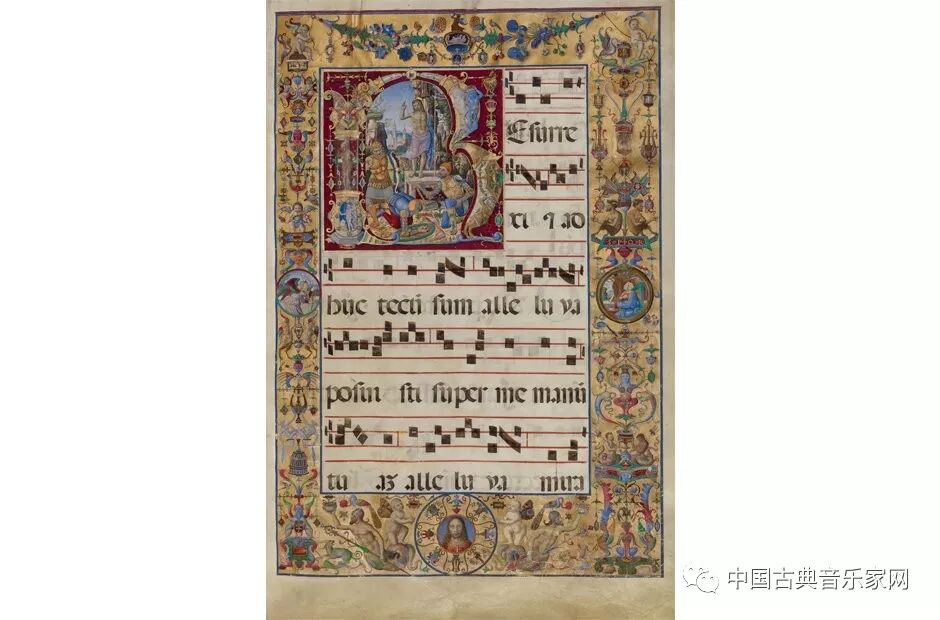 R Esurre
xi ⁊ ad
huc tecū sum alle lu ya
posui sti super me manū
tu az alle lu ya mira
中国古典音乐家网